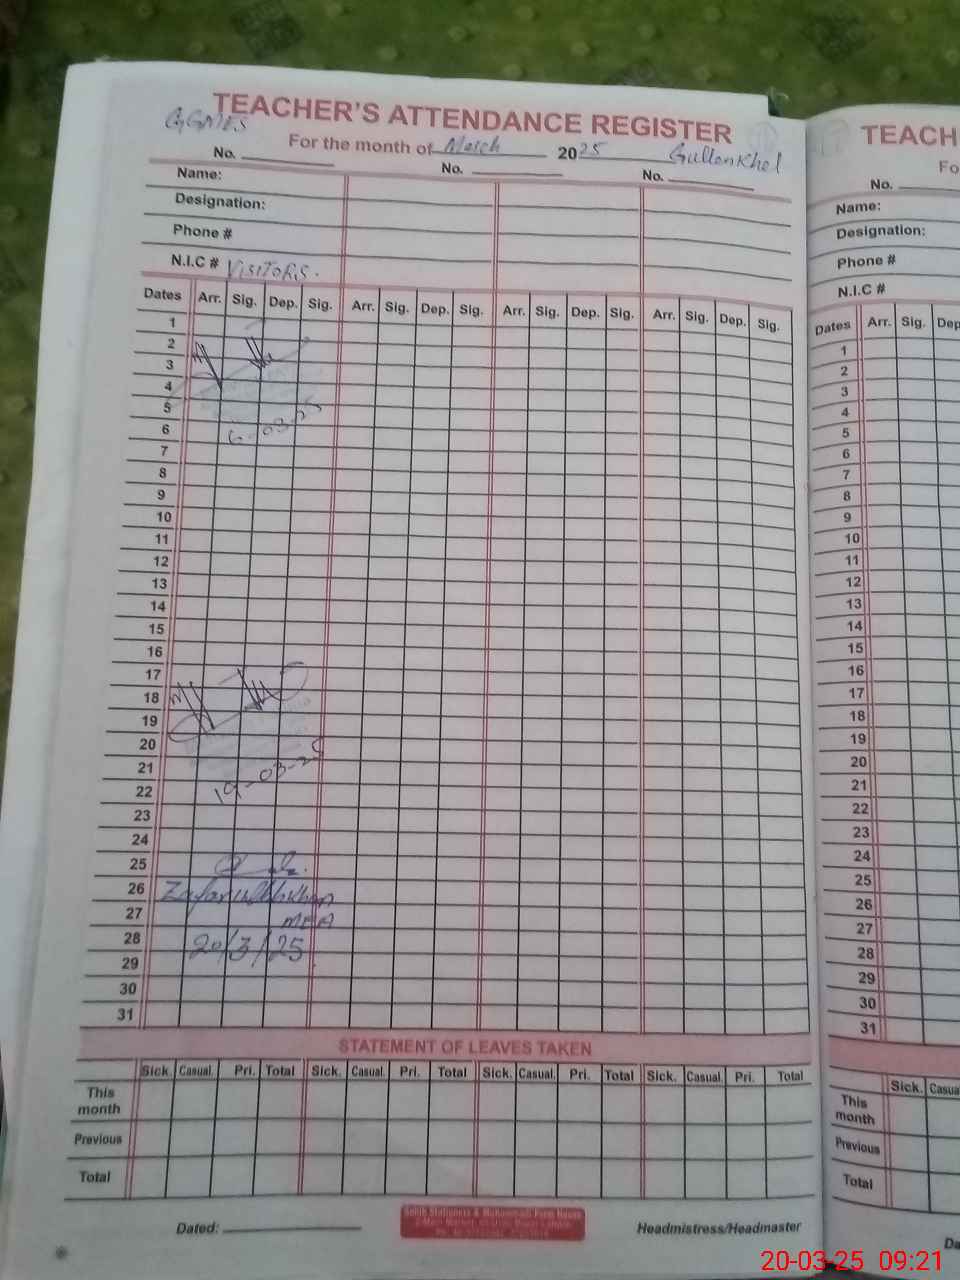 TEACHER'S ATTENDANCE REGISTER
GGMES
For the month of March 2025 Gullankhel
No. No. No.
Name:
Designation:
Phone #
N.I.C # VISITORS.
Dates Arr. Sig. Dep. Sig. Arr. Sig. Dep. Sig. Arr. Sig. Dep. Sig. Arr. Sig. Dep. Sig.
1
2
3
4
5
6 6-03-25
7
8
9
10
11
12
13
14
15
16
17
18
19
20
21
22 19-03-25
23
24
25
26 Zafarullah Khan
27 MEA
28 20/3/25
29
30
31
STATEMENT OF LEAVES TAKEN
Sick. Casual. Pri. Total Sick. Casual. Pri. Total Sick. Casual. Pri. Total Sick. Casual. Pri. Total
This month
Previous
Total
Dated: Headmistress/Headmaster
TEACH
Fo
No.
Name:
Designation:
Phone #
N.I.C #
Dates Arr. Sig. Dep
1
2
3
4
5
6
7
8
9
10
11
12
13
14
15
16
17
18
19
20
21
22
23
24
25
26
27
28
29
30
31
Sick. Casua
This month
Previous
Total
Da
20-03-25 09:21